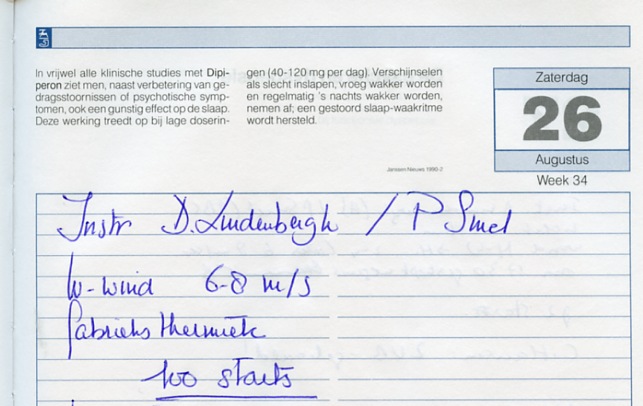 In vrijwel alle klinische studies met Dipi-
peron ziet men, naast verbetering van ge-
dragsstoornissen of psychotische symp-
tomen, ook een gunstig effect op de slaap.
Deze werking treedt op bij lage doserin-
gen (40-120 mg per dag). Verschijnselen
als slecht inslapen, vroeg wakker worden
en regelmatig 's nachts wakker worden,
nemen af; een gestoord slaap-waakritme
wordt hersteld.
Janssen Nieuws 1990-2
Zaterdag
26
Augustus
Week 34
Instr D. Lindenbergh / P Smel
W-wind 6-8 m/s
fabrieks thermiek
100 starts